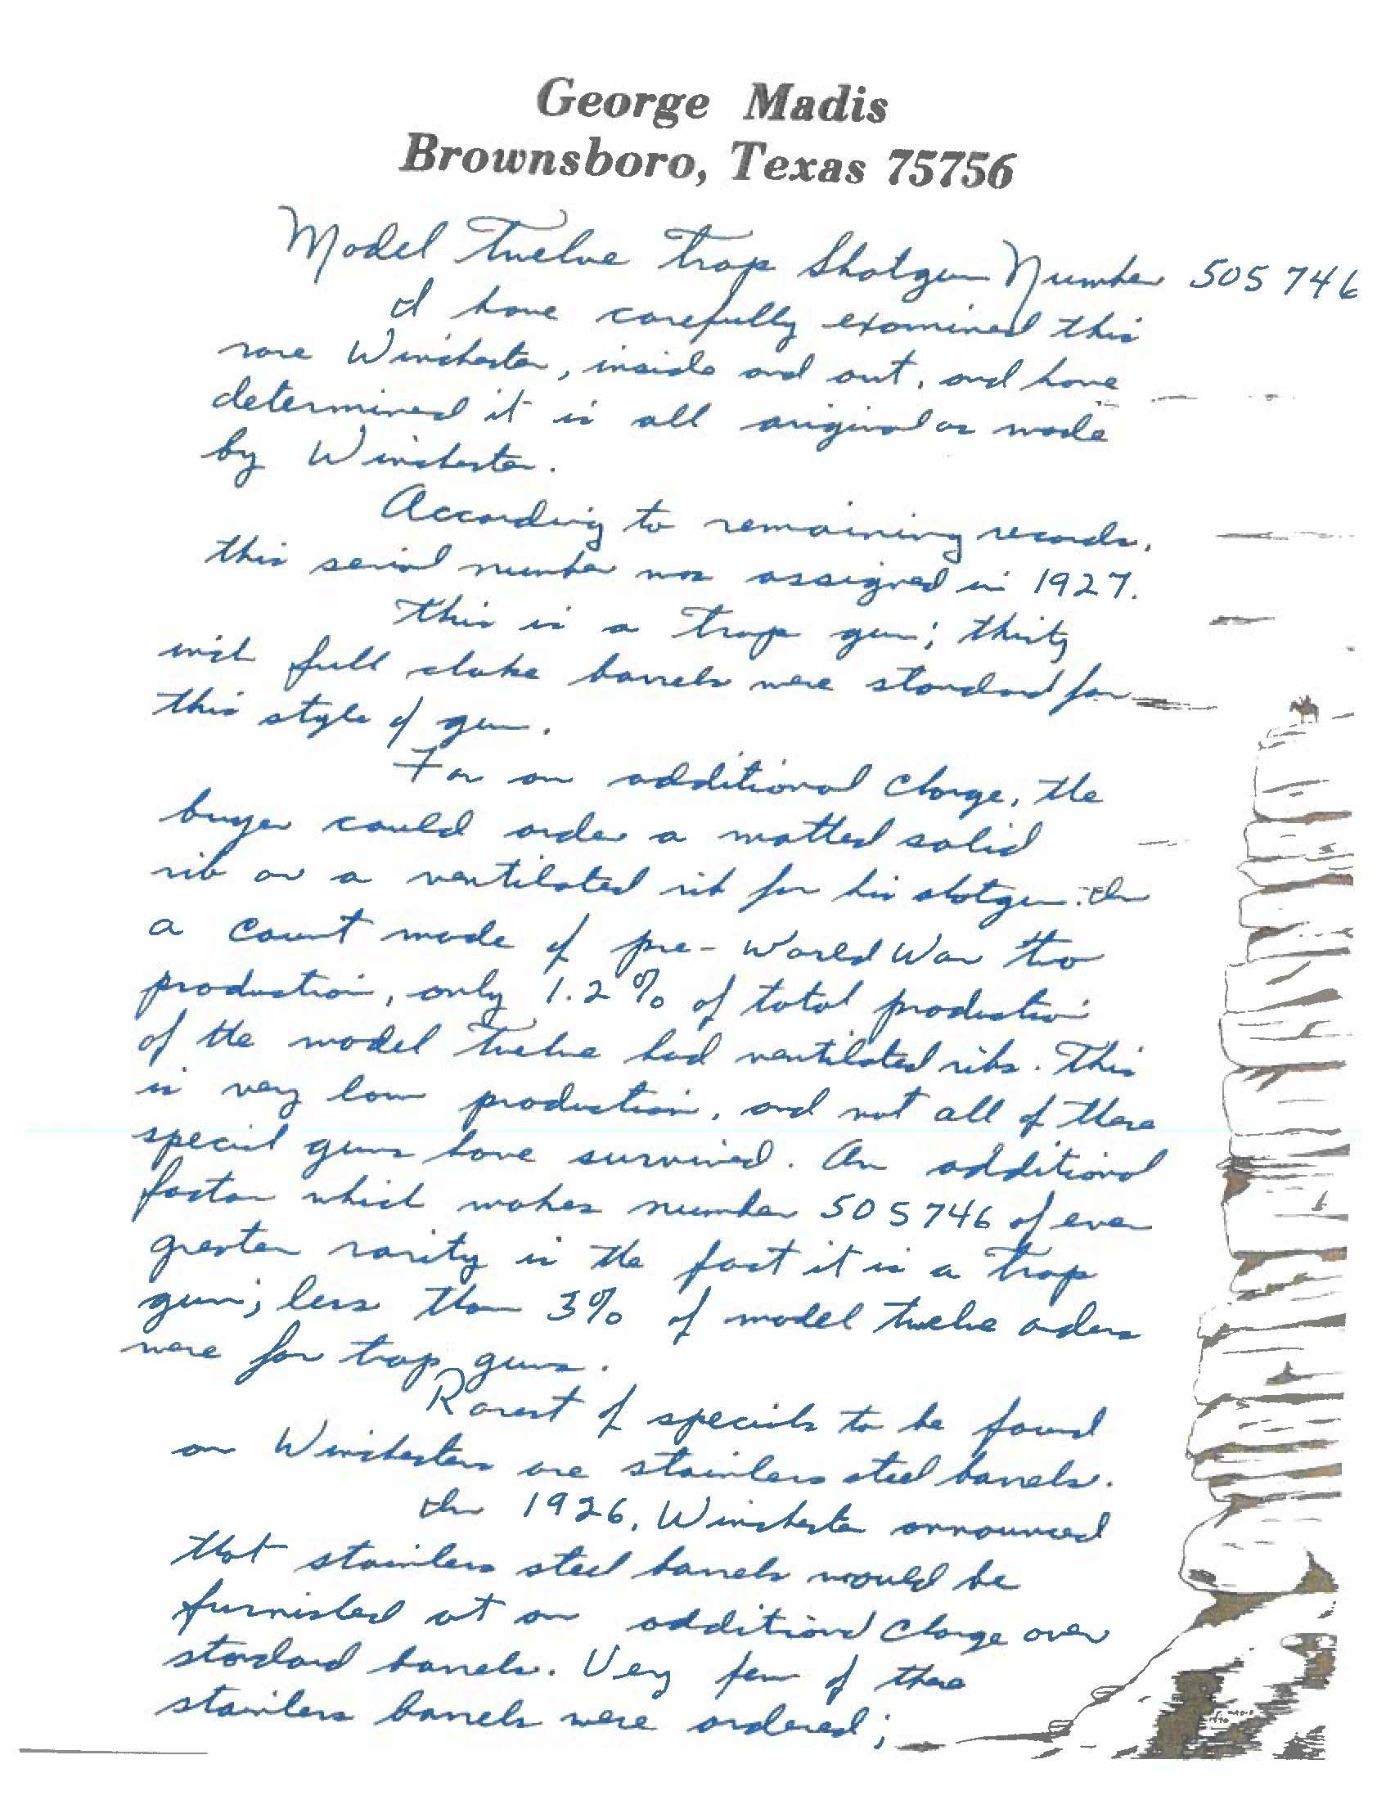 George Madis
Brownsboro, Texas 75756
Model Twelve Trap Shotgun Number 505746
I have carefully examined this
rare Winchester, inside and out, and have
determined it is all original as made
by Winchester.
According to remaining records,
this serial number was assigned in 1927.
This is a trap gun; thirty
inch full choke barrels were standard for
this style of gun.
For an additional charge, the
buyer could order a matted solid
rib or a ventilated rib for his shotgun. In
a count made of pre-World War Two
production, only 1.2% of total production
of the model Twelve had ventilated ribs. This
is very low production, and not all of these
special guns have survived. An additional
factor which makes number 505746 of even
greater rarity is the fact it is a trap
gun; less than 3% of model twelve orders
were for trap guns.
Rarest of specials to be found
on Winchesters are stainless steel barrels.
In 1926, Winchester announced
that stainless steel barrels would be
furnished at an additional charge over
standard barrels. Very few of these
stainless barrels were ordered;